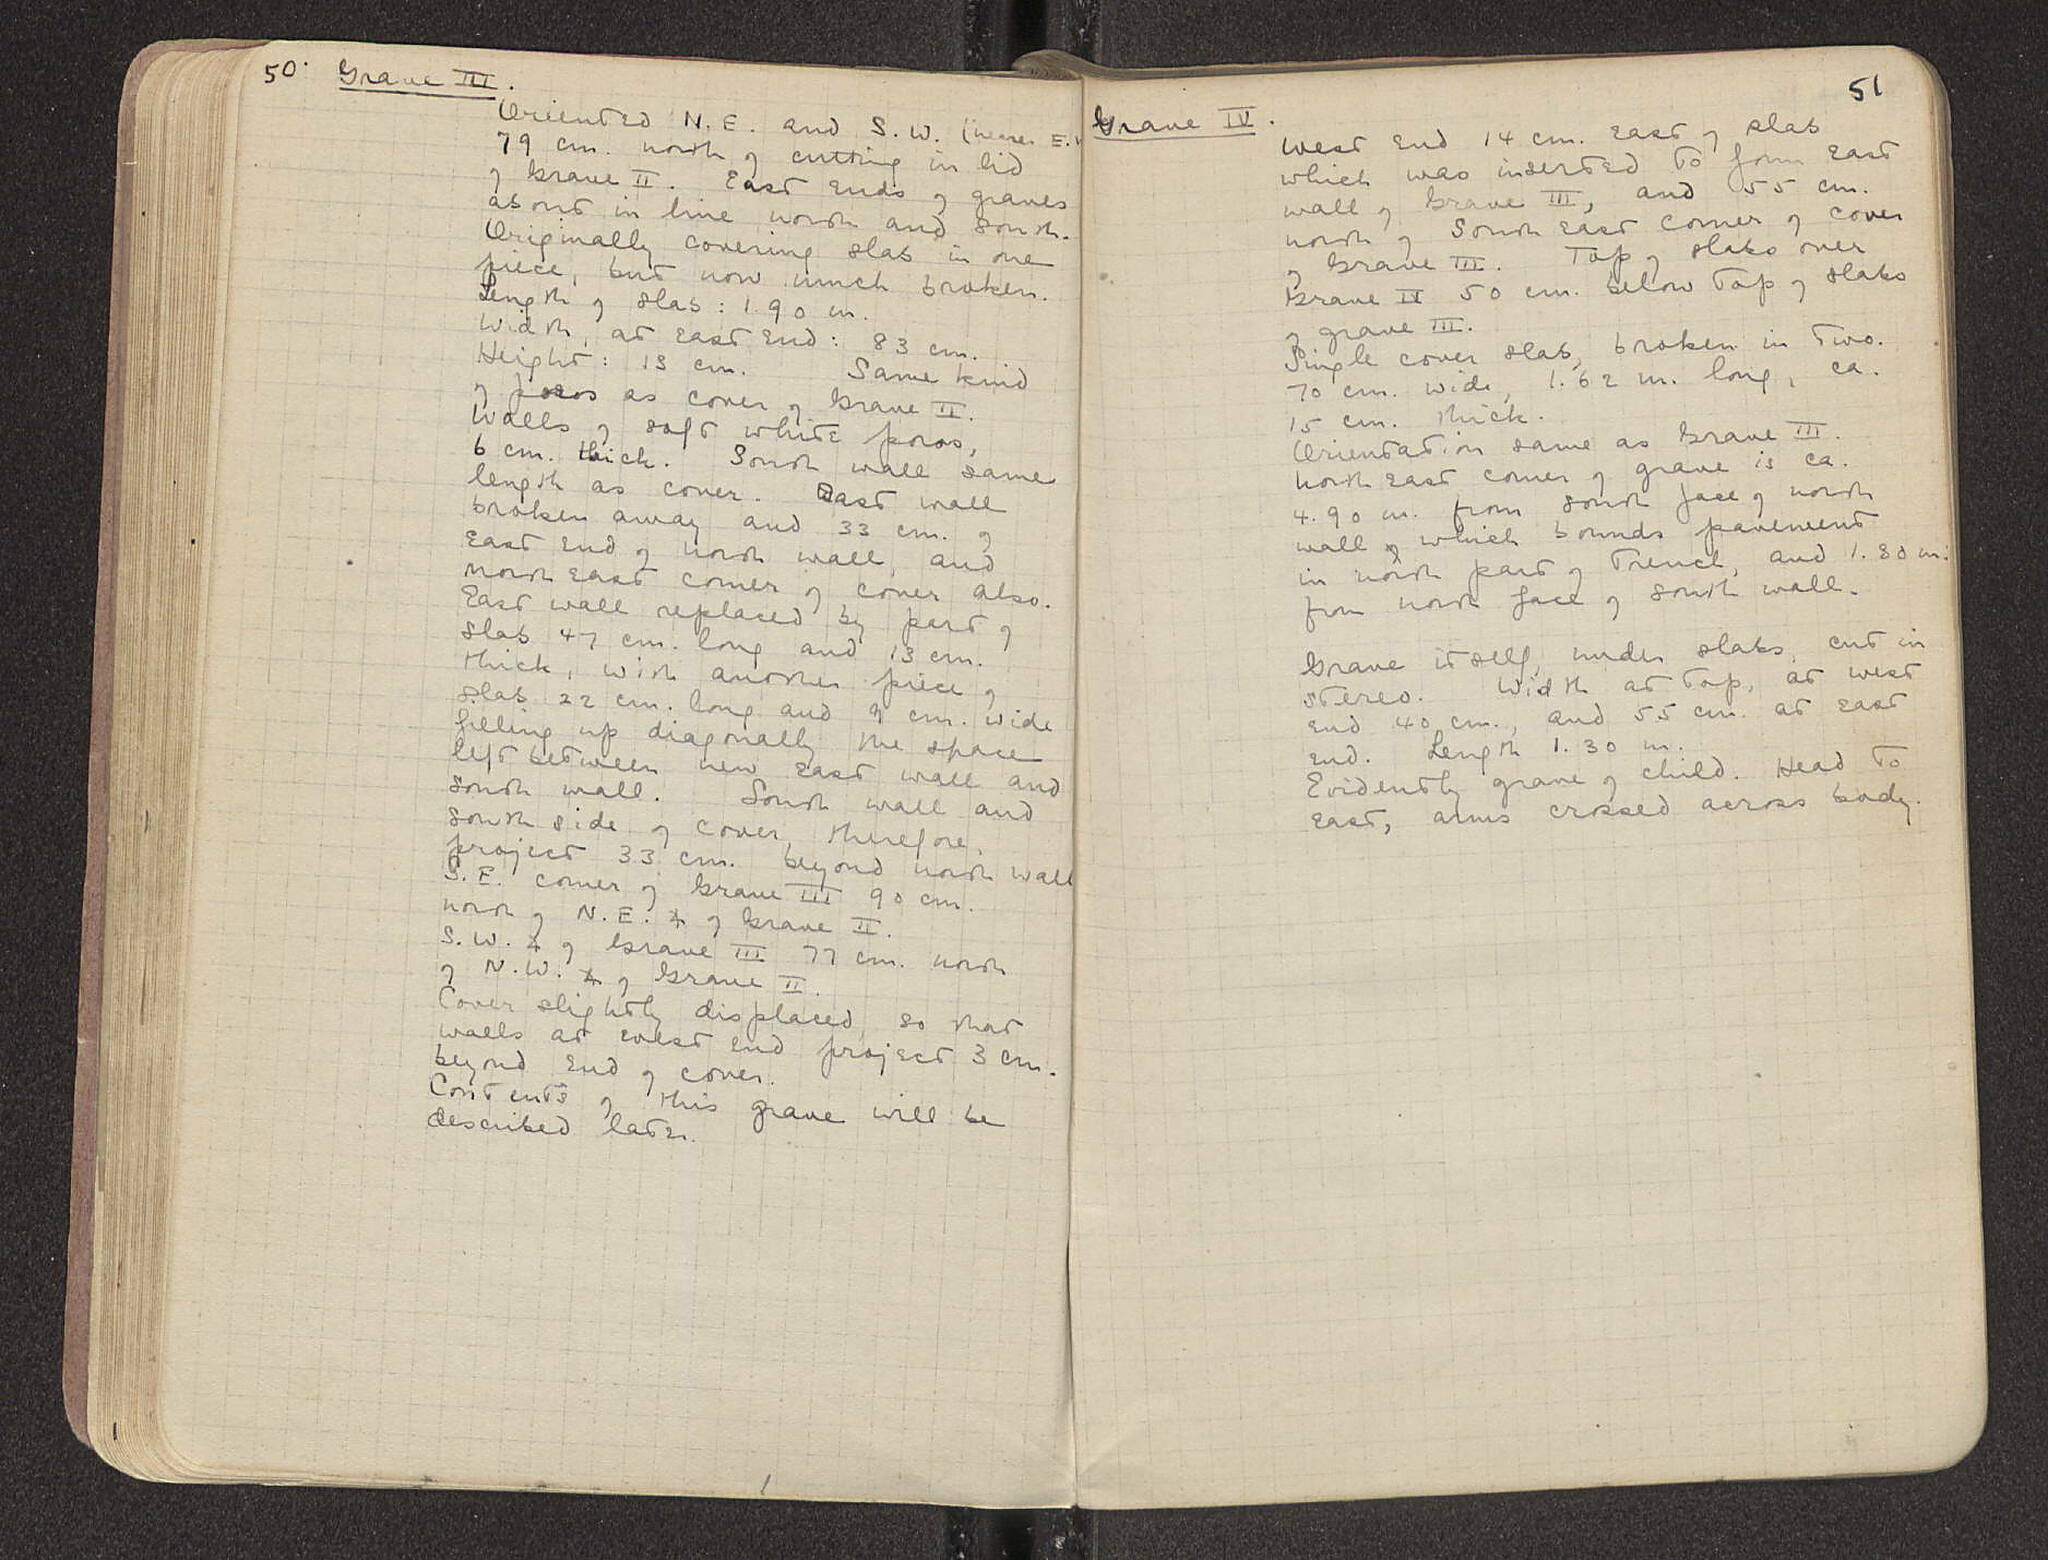 50. Grave III.
Oriented N.E. and S.W. (near E.W
79 cm. north of cutting in lid
of Grave II. East ends of graves
about in line north and south.
Originally covering slab in one
piece, but now much broken.
Length of slab: 1.90 m.
Width, at east end: 83 cm.
Height: 13 cm. Same kind
of poros as cover of Grave II.
Walls of soft white poros,
6 cm. thick. South wall same
length as cover. East wall
broken away and 33 cm. of
east end of north wall, and
north east corner of cover also.
East wall replaced by part of
slab 47 cm. long and 13 cm.
thick, with another piece of
slab 22 cm. long and 9 cm. wide
filling up diagonally the space
left between new east wall and
south wall. South wall and
south side of cover, therefore,
project 33 cm. beyond north wall
S.E. corner of Grave III 90 cm.
north of N.E. ∠ of Grave II.
S.W. ∠ of Grave III 77 cm. north
of N.W. ∠ of Grave II.
Cover slightly displaced, so that
walls at west end project 3 cm.
beyond end of cover.
Contents of this grave will be
described later.
51
Grave IV.
West end 14 cm. east of slab
which was inserted to form east
wall of Grave III, and 55 cm.
north of south east corner of cover
of Grave III. Top of slabs over
Grave IV 50 cm. below top of slabs
of grave III.
Single cover slab, broken in two.
70 cm. wide, 1.62 m. long, ca.
15 cm. thick.
Orientation same as Grave III.
North east corner of grave is ca.
4.90 m. from south face of north
wall which bounds pavement
in north part of trench, and 1.80 m.
from north face of south wall.
Grave itself, under slabs, cut in
stereo. Width at top, at west
end 40 cm., and 55 cm. at east
end. Length 1.30 m.
Evidently grave of child. Head to
east, arms crossed across body.